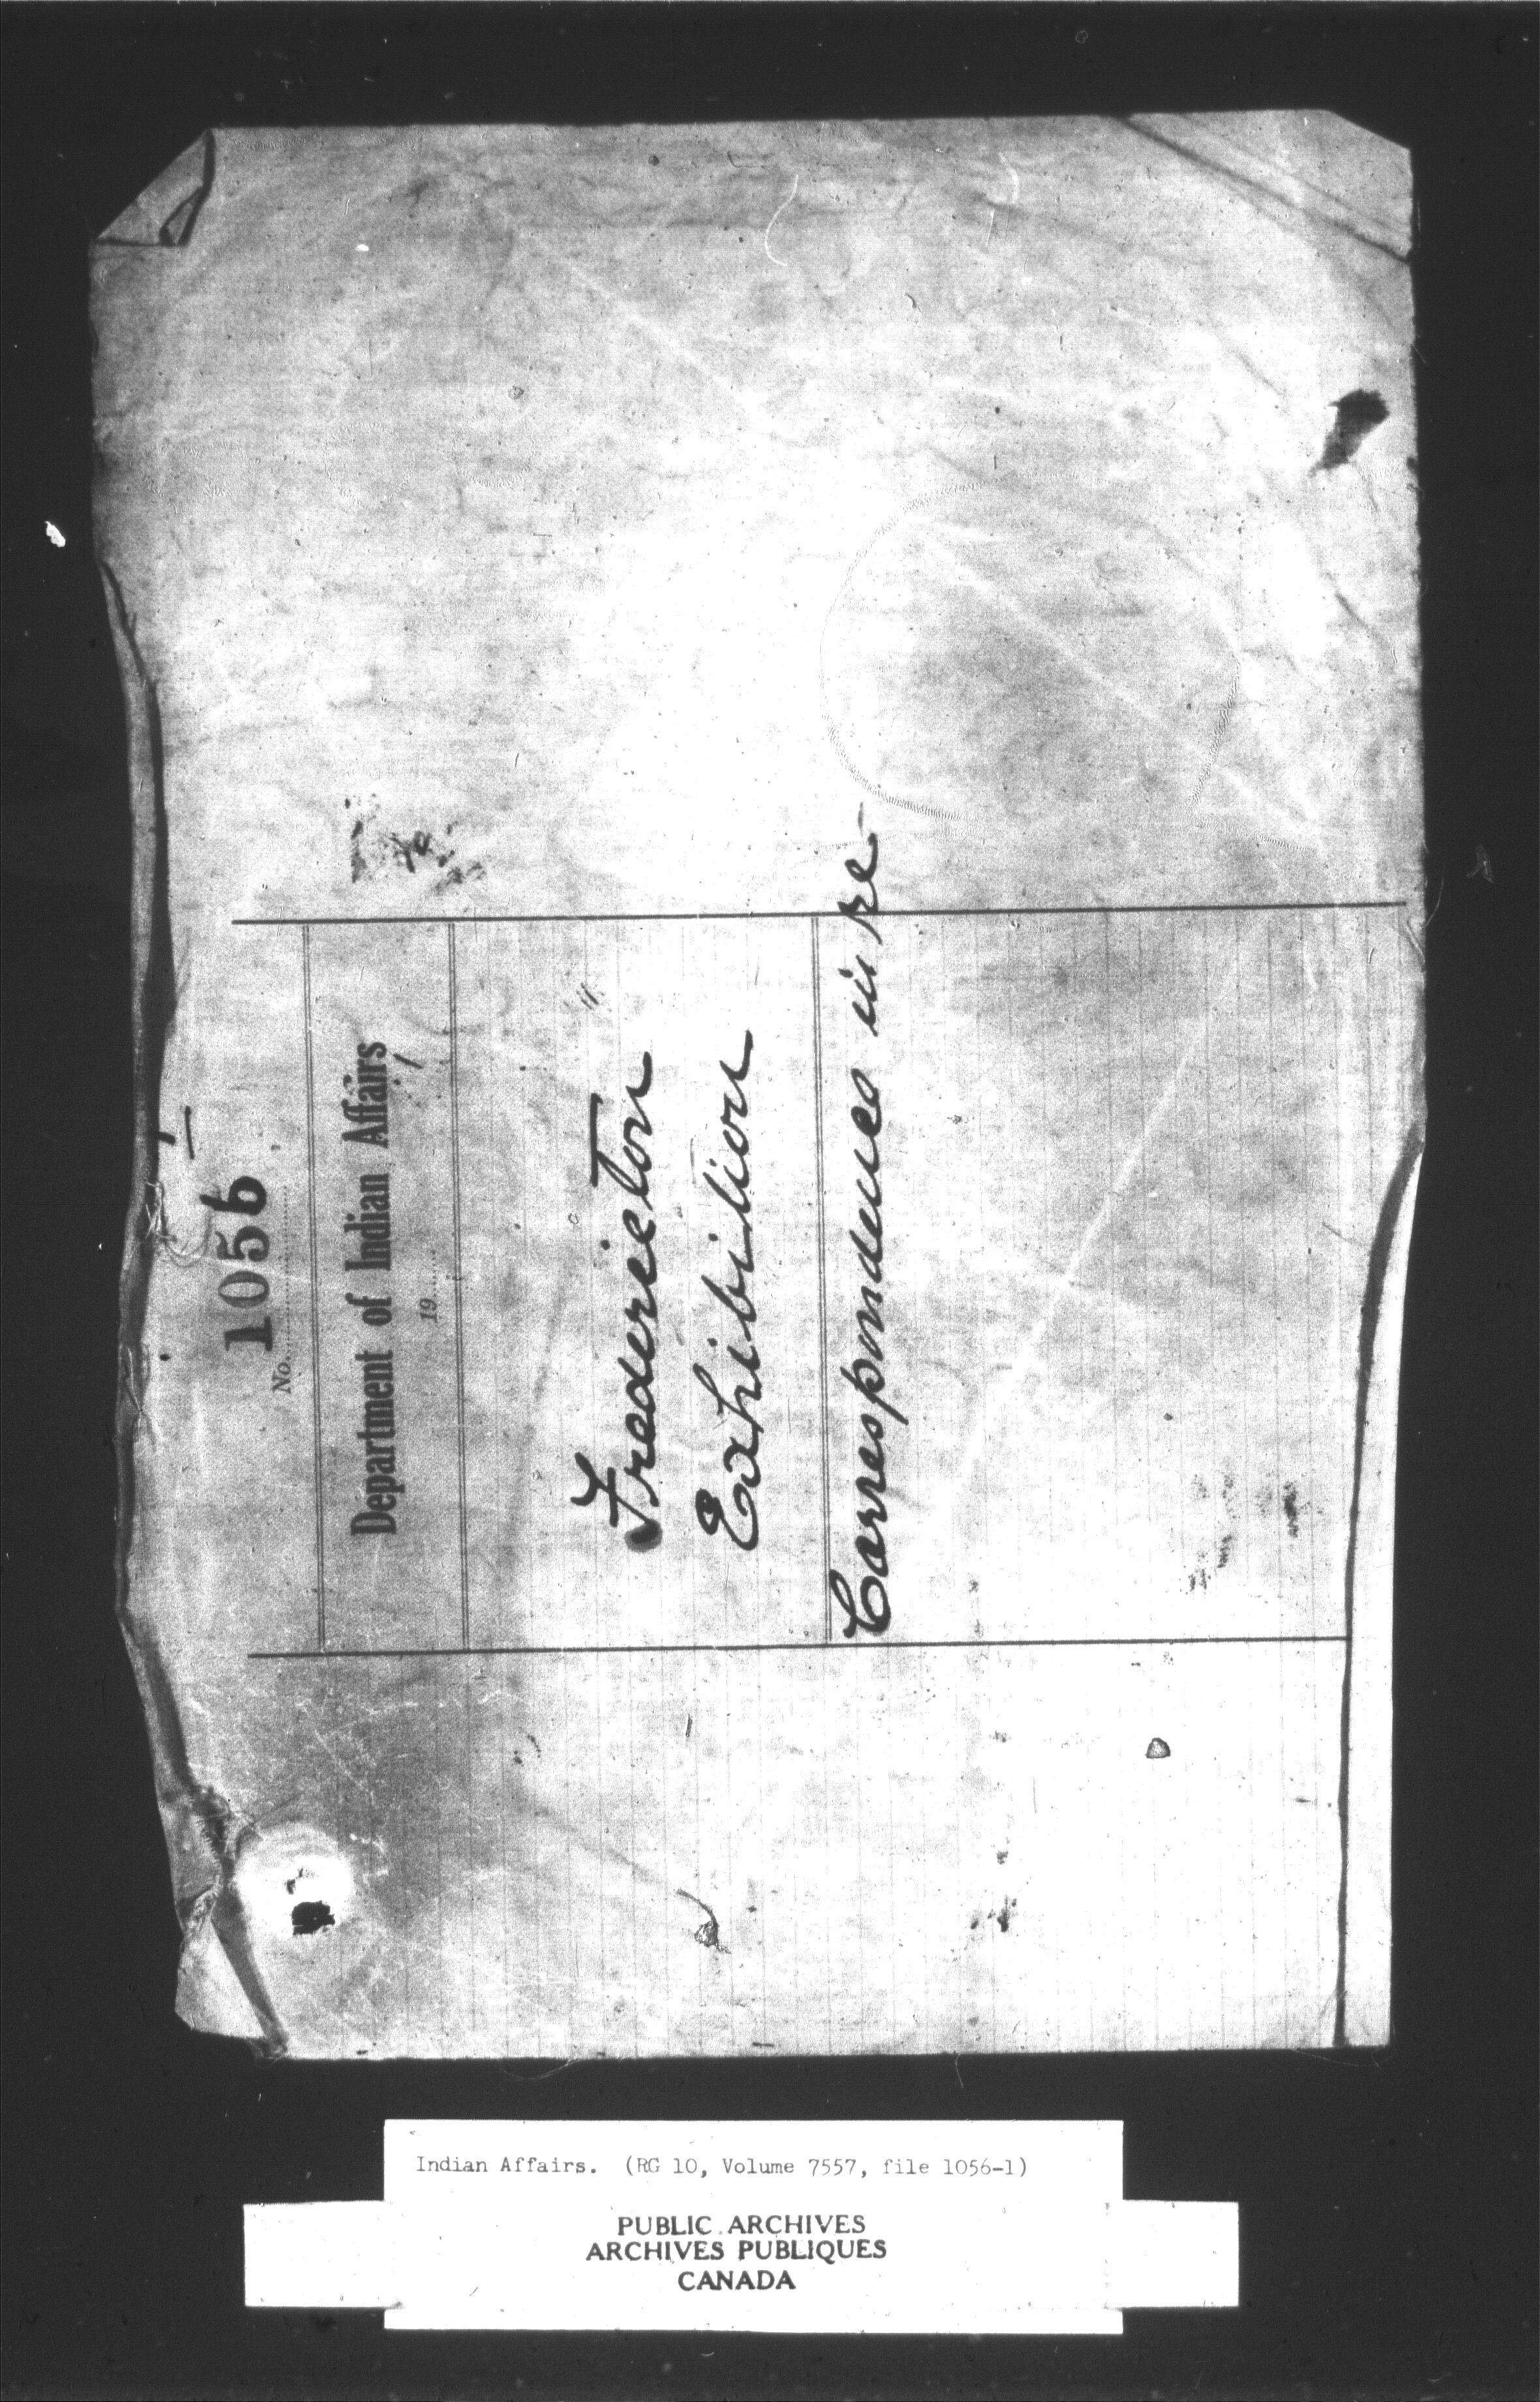 1056-1
No.
Department of Indian Affairs
19
Fredericton
Exhibition
Correspondence in re
Indian Affairs. (RG 10, Volume 7557, file 1056-1)
PUBLIC ARCHIVES
ARCHIVES PUBLIQUES
CANADA